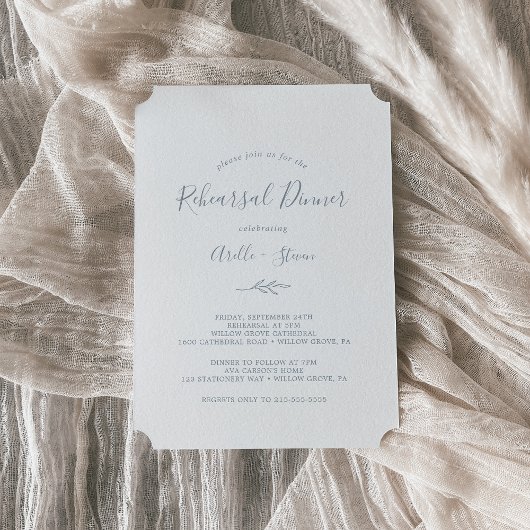 please join us for the
Rehearsal Dinner
celebrating
Arelle - Steven
FRIDAY, SEPTEMBER 24TH
REHEARSAL AT 5PM
WILLOW GROVE CATHEDRAL
1600 CATHEDRAL ROAD • WILLOW GROVE, PA
DINNER TO FOLLOW AT 7PM
AVA CARSON'S HOME
123 STATIONERY WAY • WILLOW GROVE, PA
REGRETS ONLY TO 215-555-5555